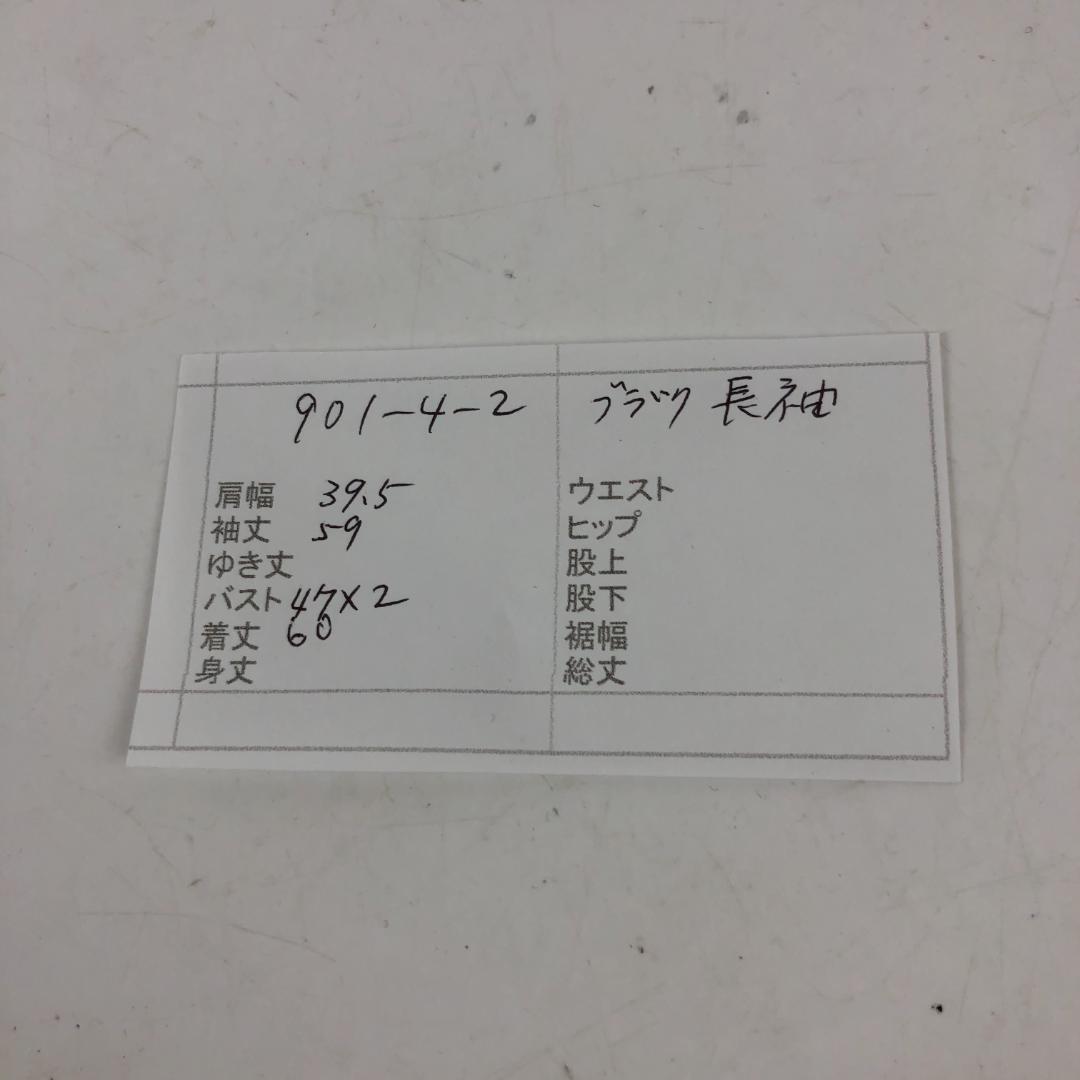 901-4-2 ブラック 長袖
肩幅 39.5 ウエスト
袖丈 59 ヒップ
ゆき丈 股上
バスト 47×2 股下
着丈 60 裾幅
身丈 総丈